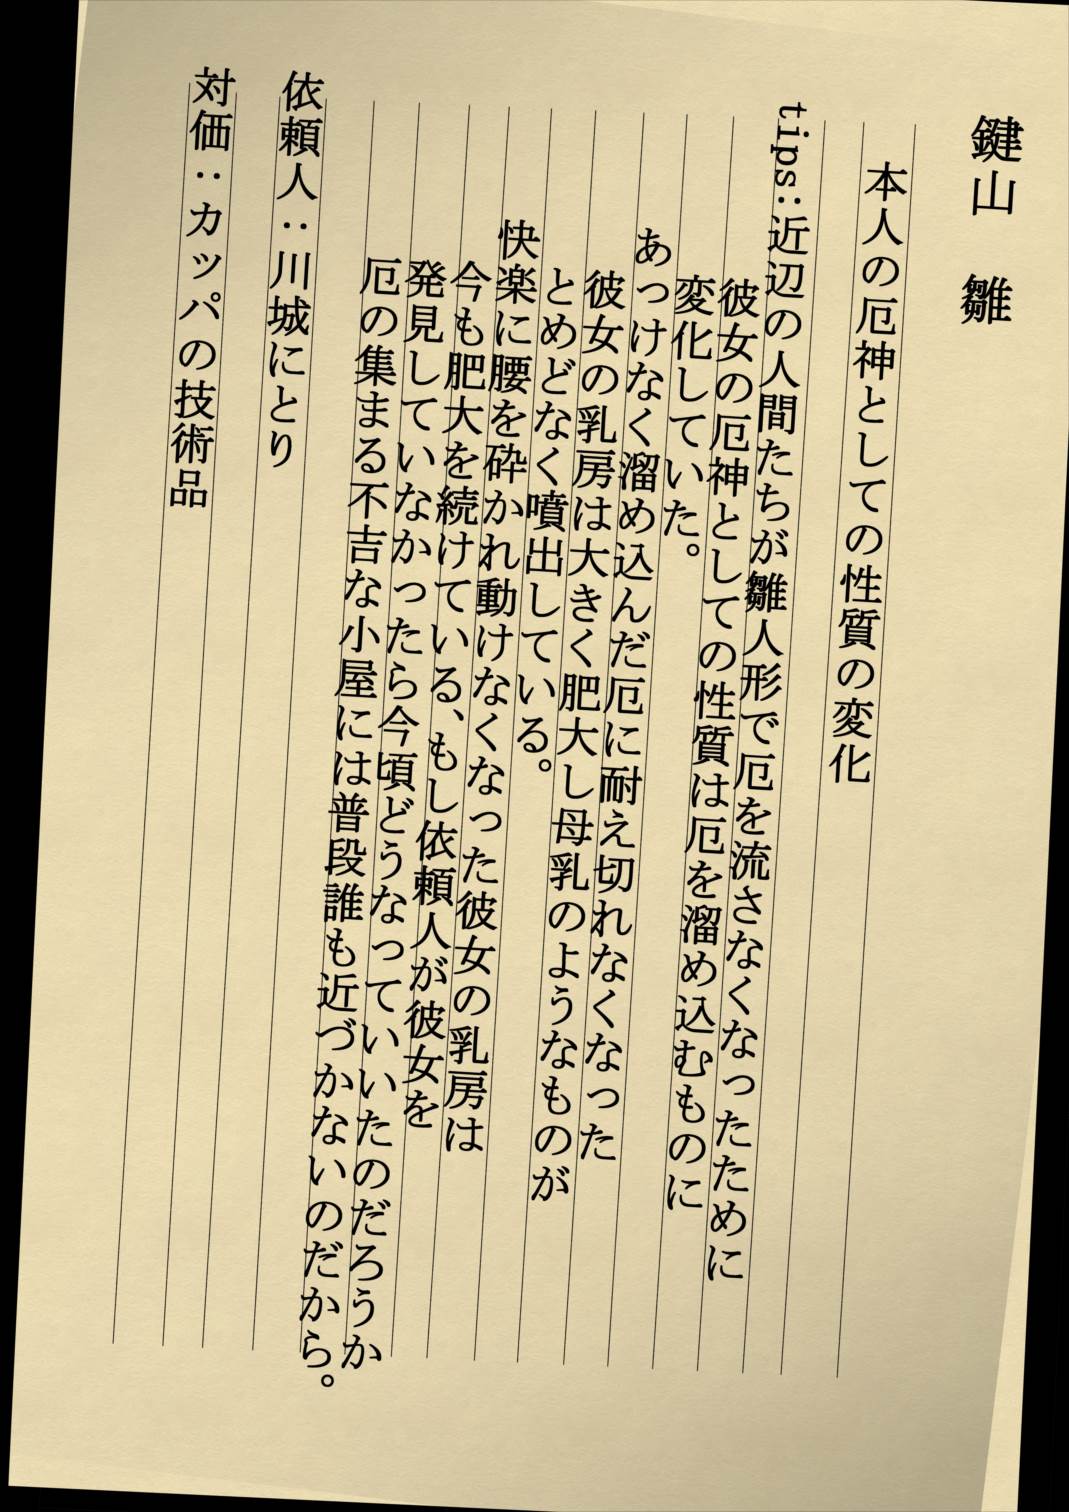 鍵山 雛
本人の厄神としての性質の変化
tips:近辺の人間たちが雛人形で厄を流さなくなったために
彼女の厄神としての性質は厄を溜め込むものに
変化していた。
あっけなく溜め込んだ厄に耐え切れなくなった
彼女の乳房は大きく肥大し母乳のようなものが
とめどなく噴出している。
快楽に腰を砕かれ動けなくなった彼女の乳房は
今も肥大を続けている、もし依頼人が彼女を
発見していなかったら今頃どうなっていいたのだろうか
厄の集まる不吉な小屋には普段誰も近づかないのだから。
依頼人:川城にとり
対価:カッパの技術品